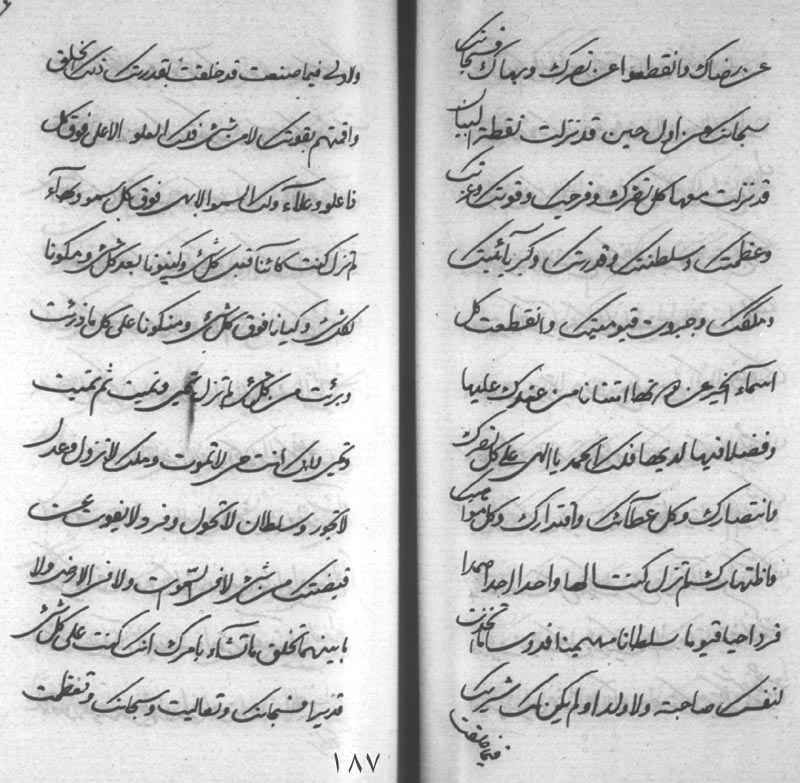 عن رضاك وانقطعوا عن نصرك وبهاك فسبحانك
سبحانك من اول حين قد نزلت نقطة البيان
قد نزلت معها كل نصرك وفرحك وقوتك وعزتك
وعظمتك وسلطنتك وقدرتك وكبريائيتك
وملكك وجبروت قيوميتك وانقطعت كل
اسماء الخير عن امتنانا من عندك عليها
وفضلا فيها لديها فلك الحمد يا الهى على كل نصرك
وانتصارك وكل عطائك واقتدارك وكل مواهبك
واظتهارك لم تزل كنت الها واحدا احدا صمدا
فردا حيا قيوما سلطانا مهيمنا قدوسا ما اتخذت
لنفسك صاحبة ولا ولدا ولم يكن لك شريك
فيما خلقت
ولا ولى فيما صنعت قد خلقت بقدرتك ذلك الخلق
واقمتهم بقوتك لا من شئ فلك العلو الاعلى فوق كل
ذا علو وعلاء ولك السمو الابهى فوق كل سمو وبهاء
لم تزل كنت كائنا قبل كل شئ وكينونا بعد كل شئ ومكونا
لكل شئ وكيانا فوق كل شئ ومتكونا على كل ما ذرئت
وبرئت من كل شئ لم تزل تحيى وتميت ثم تميت
وتحيى وانك انت حى لا تموت وملك لا تزول وعدل
لا تجور وسلطان لا تحول وفرد لا يفوت عن
قبضتك من شئ لا فى السموات ولا فى الارض ولا
ما بينهما تخلق ما تشاء بامرك انك كنت على كل شئ
قديرا فسبحانك وتعاليت وسبحانك وتعظمت
١٨٧